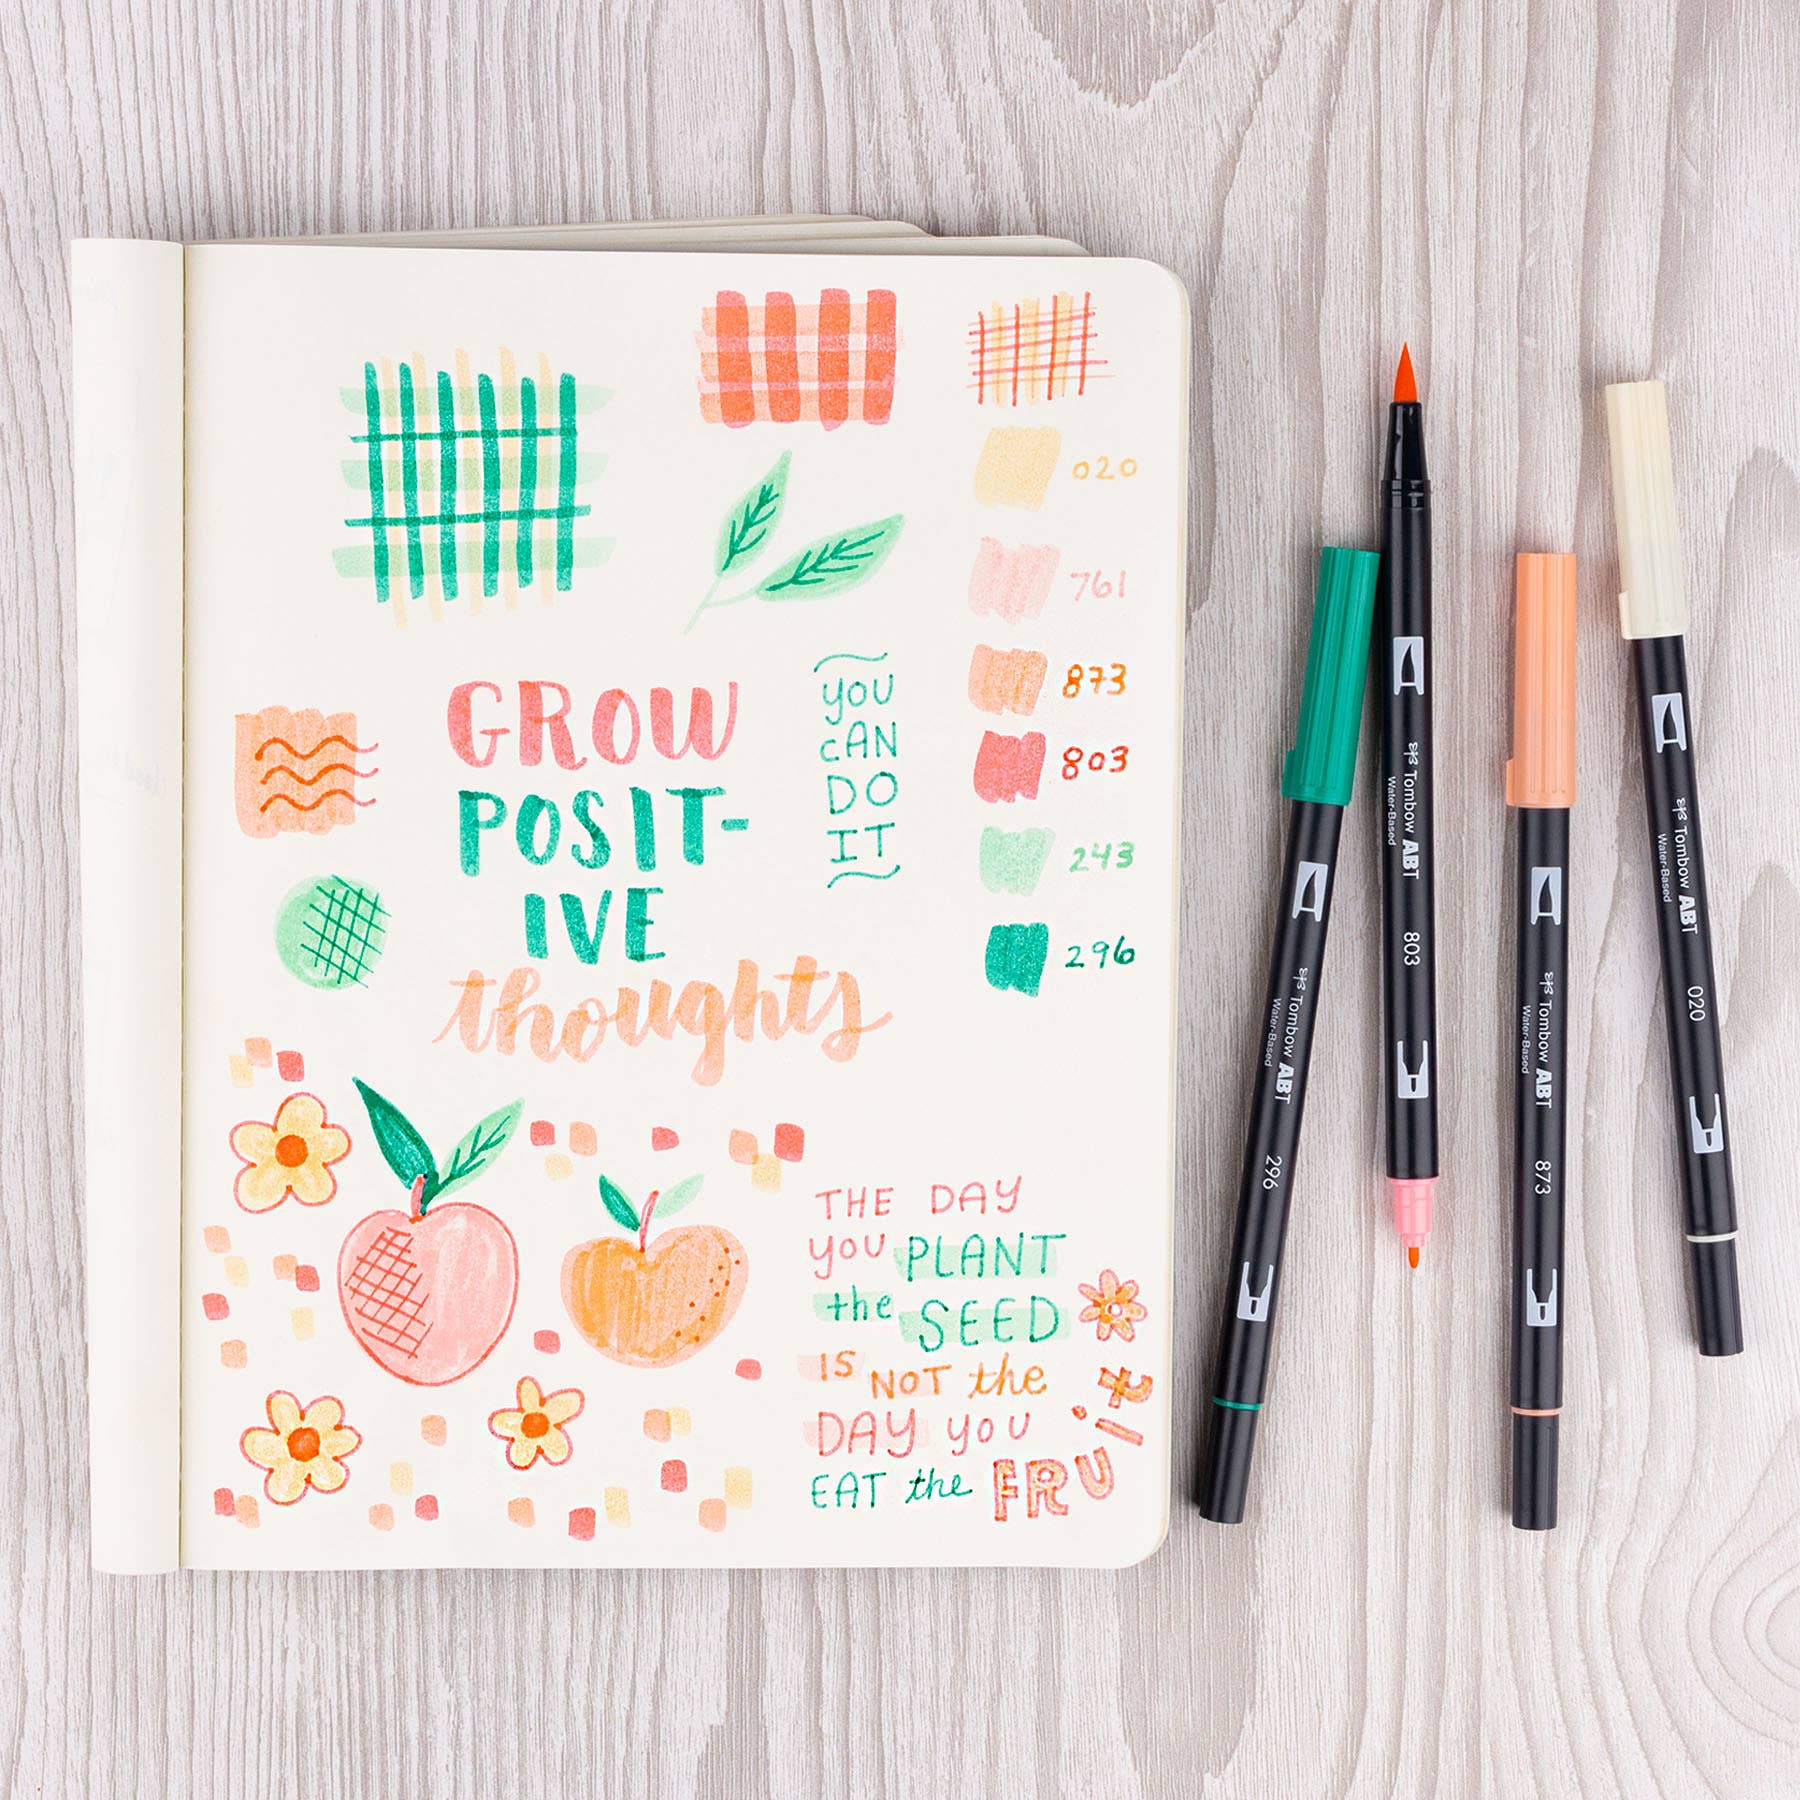 020
761
873
803
243
296
YOU
CAN
DO
IT
GROW
POSIT-
IVE
thoughts
THE DAY
YOU PLANT
the SEED
IS NOT the
DAY YOU
EAT the FRUIT
Tombow ABT
Water-Based
296
Tombow ABT
Water-Based
803
Tombow ABT
Water-Based
873
Tombow ABT
Water-Based
020